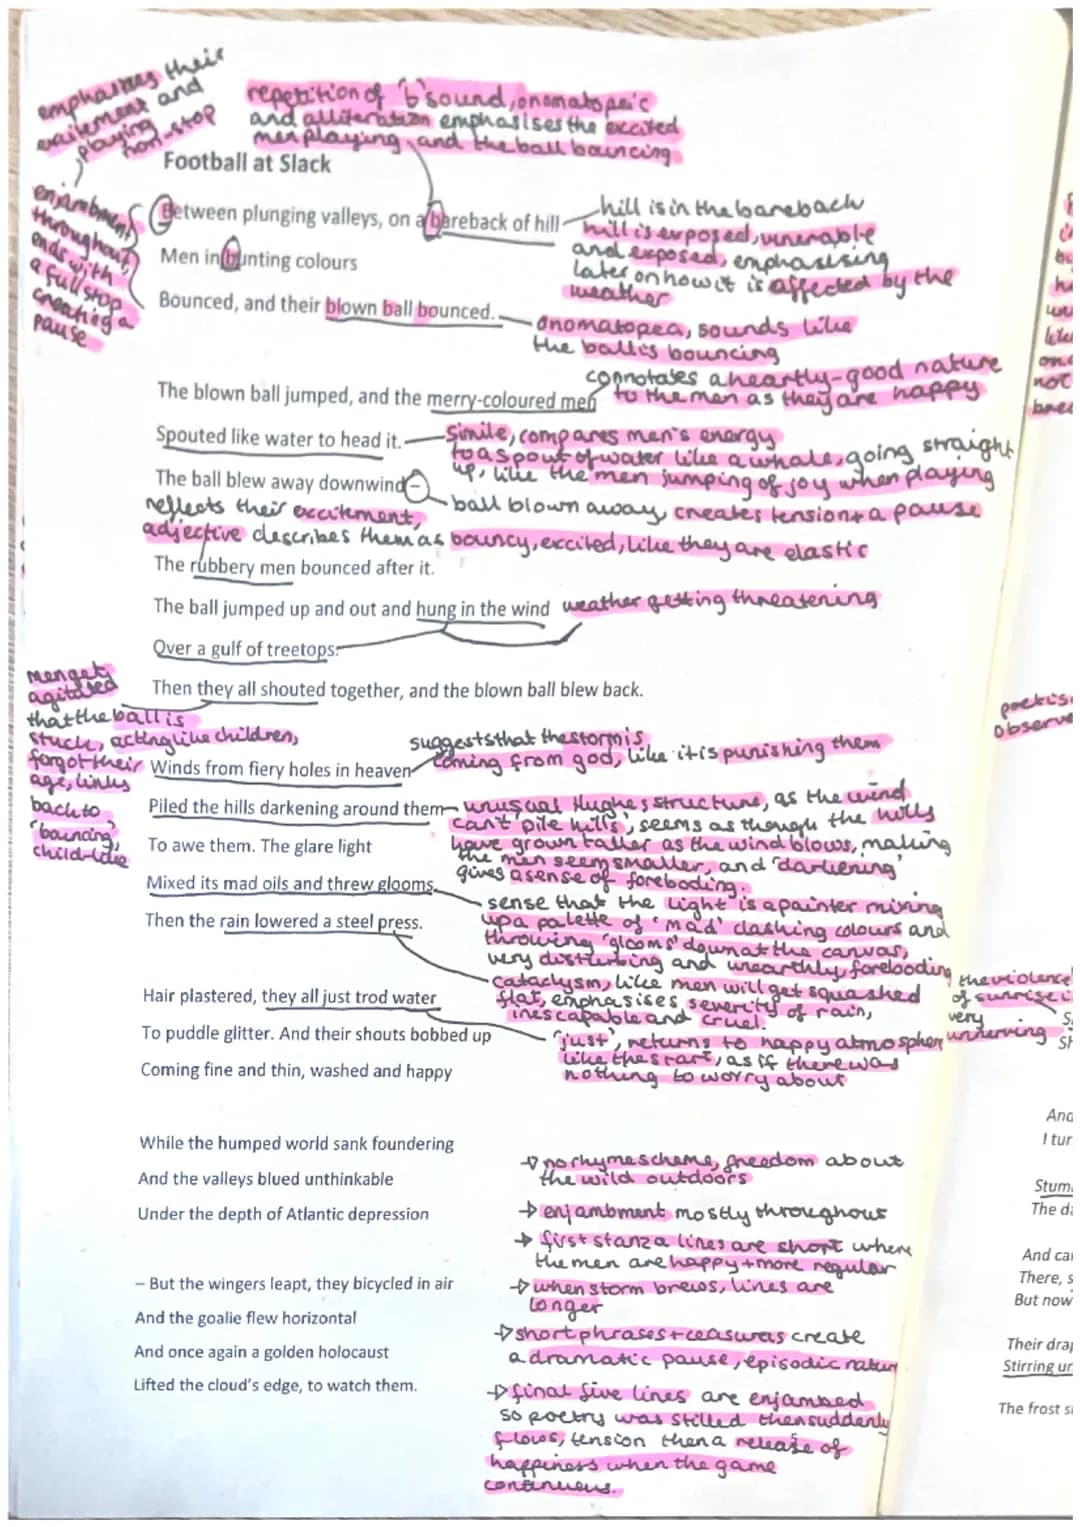 emphasises their
excitement and
playing
non-stop
repetition of 'b' sound, onomatopeic
and alliteration emphasises the excited
men playing and the ball bouncing
Football at Slack
enjambment
throughout,
ends with
a full stop
creating a
pause
Between plunging valleys, on a bareback of hill
hill is in the bareback
hill is exposed, vunerable
and exposed, emphasising
later on how it is affected by the
weather
Men in bunting colours
Bounced, and their blown ball bounced.
onomatopea, sounds like
the ball is bouncing
connotates a heartly-good nature
to the men as they are happy
The blown ball jumped, and the merry-coloured men
Spouted like water to head it.
simile, compares men's energy
to a spout of water like a whale, going straight
up, like the men jumping of joy when playing
The ball blew away downwind –
ball blown away, creates tension + a pause
reflects their excitement,
adjective describes them as bouncy, excited, like they are elastic
The rubbery men bounced after it.
The ball jumped up and out and hung in the wind
weather getting threatening
Over a gulf of treetops.
Then they all shouted together, and the blown ball blew back.
men get
agitated
that the ball is
stuck, acting like children,
forgot their
age, links
back to
'bouncing,'
child-like
suggests that the storm is
coming from god, like it is punishing them
Winds from fiery holes in heaven
Piled the hills darkening around them
unusual Hughes structure, as the wind
can't 'pile hills', seems as though the hills
have grown taller as the wind blows, making
the men seem smaller, and 'darkening'
gives a sense of foreboding.
To awe them. The glare light
Mixed its mad oils and threw glooms.
sense that the light is a painter mixing
up a palette of 'mad' clashing colours and
throwing 'glooms' down at the canvas,
very disturbing and unearthly, forebooding
Then the rain lowered a steel press.
cataclysm, like men will get squashed
flat, emphasises severity of rain,
inescapable and cruel.
Hair plastered, they all just trod water
To puddle glitter. And their shouts bobbed up
'just', returns to happy atmospher
like the start, as if there was
nothing to worry about
Coming fine and thin, washed and happy
While the humped world sank foundering
And the valleys blued unthinkable
Under the depth of Atlantic depression
– But the wingers leapt, they bicycled in air
And the goalie flew horizontal
And once again a golden holocaust
Lifted the cloud's edge, to watch them.
→ no rhyme scheme, freedom about
the wild outdoors
→ enjambment mostly throughout
→ first stanza lines are short where
the men are happy + more regular
→ when storm brews, lines are
longer
→ short phrases + ceasuras create
a dramatic pause, episodic natur
→ final five lines are enjambed
so poetry was stilled then suddenly
flows, tension then a release of
happiness when the game
continuous.
poet is
observe
the violence
of sunrise i
very
unnerving
And
I tur
Stum
The da
And ca
There, s
But now
Their drap
Stirring un
The frost s